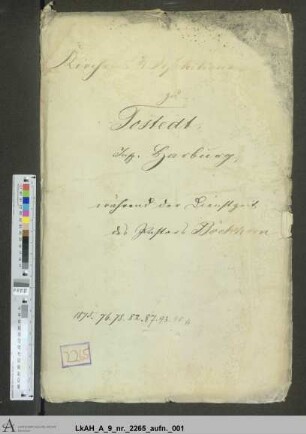 Kirchen Visitationen
zu
Tostedt,
Insp. Harburg,
während der Dienstzeit
des Pastors
1875. 78. 82. 87. 92.
2265
LkAH_A_9_nr._2265_aufn._001